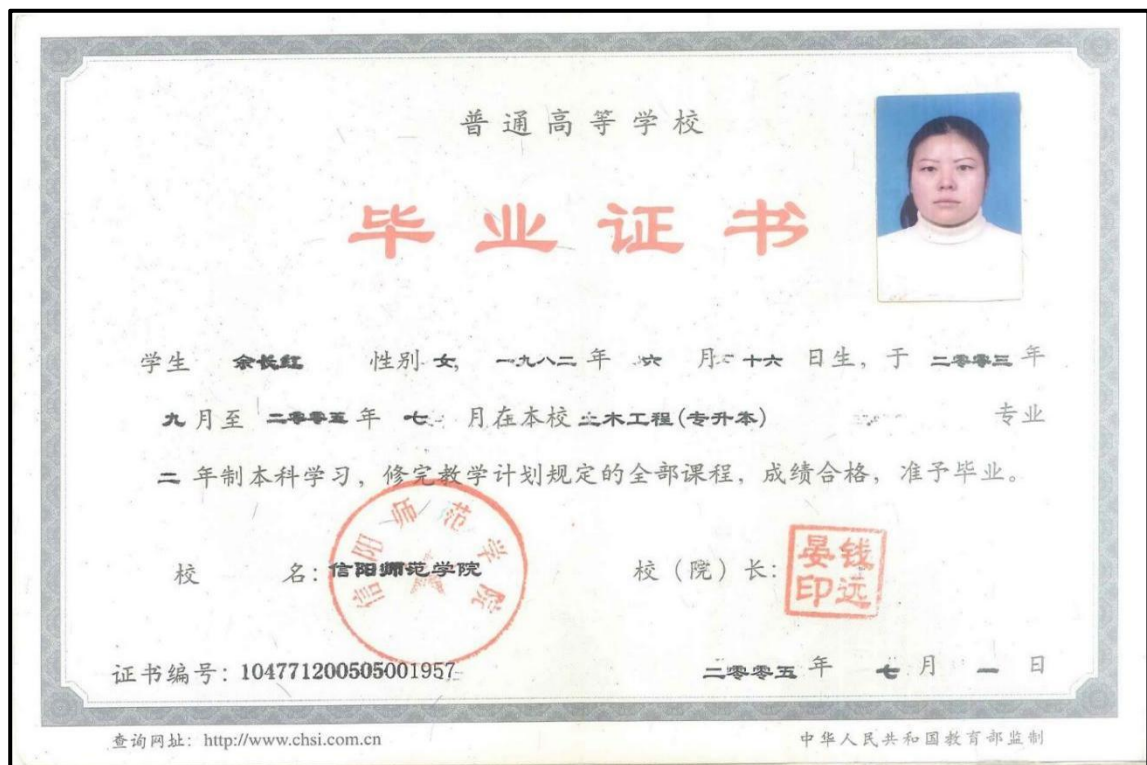 普通高等学校
毕业证书
学生 余长红 性别 女, 一九八二 年 六 月二十六 日生, 于 二零零三 年
九 月至 二零零五 年 七 月在本校 土木工程(专升本) 专业
二 年制本科学习, 修完教学计划规定的全部课程, 成绩合格, 准予毕业。
信阳师范学院
校 名: 信阳师范学院 校(院)长: 钱远晏印
证书编号: 104771200505001957 二零零五 年 七 月 一 日
查询网址: http://www.chsi.com.cn 中华人民共和国教育部监制